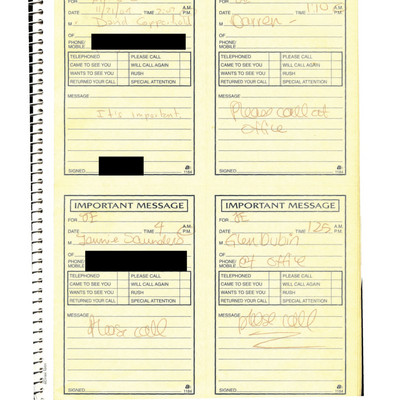 DATE 11/21/04 TIME 2:07 A.M. P.M.
M David Copperfield
OF
PHONE/
MOBILE
TELEPHONED PLEASE CALL
CAME TO SEE YOU WILL CALL AGAIN
WANTS TO SEE YOU RUSH
RETURNED YOUR CALL SPECIAL ATTENTION
MESSAGE
It's important.
SIGNED 1184
DATE TIME A.M. P.M.
M Darren
OF
PHONE/
MOBILE
TELEPHONED PLEASE CALL
CAME TO SEE YOU WILL CALL AGAIN
WANTS TO SEE YOU RUSH
RETURNED YOUR CALL SPECIAL ATTENTION
MESSAGE
Please call at
office
SIGNED 1184
IMPORTANT MESSAGE
FOR JE
DATE TIME 4 A.M. P.M.
M Jannie Saunders
OF
PHONE/
MOBILE
TELEPHONED PLEASE CALL
CAME TO SEE YOU WILL CALL AGAIN
WANTS TO SEE YOU RUSH
RETURNED YOUR CALL SPECIAL ATTENTION
MESSAGE
Please call
SIGNED 1184
IMPORTANT MESSAGE
FOR JE
DATE TIME 1:25 A.M. P.M.
M Glen Dubin
OF
PHONE/
MOBILE @ office
TELEPHONED PLEASE CALL
CAME TO SEE YOU WILL CALL AGAIN
WANTS TO SEE YOU RUSH
RETURNED YOUR CALL SPECIAL ATTENTION
MESSAGE
please call
SIGNED 1184